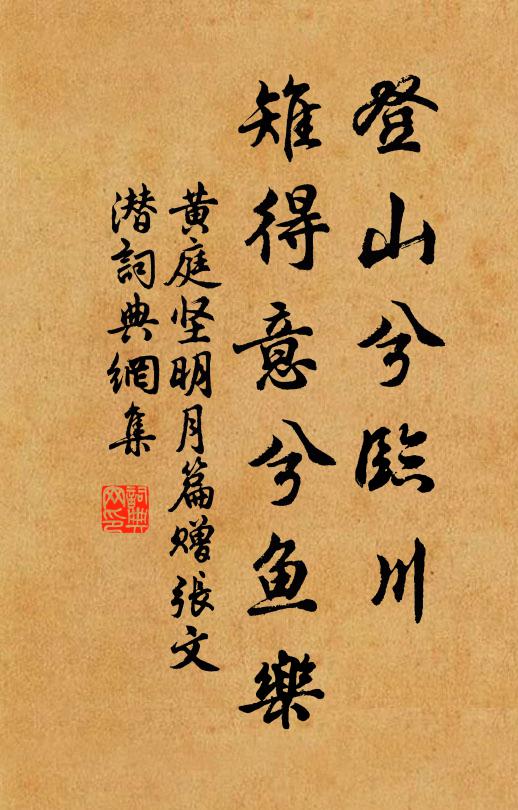 登山兮臨川
雉得意兮鱼樂
黄庭坚明月篇赠張文
潜詞典網集
詞典网印